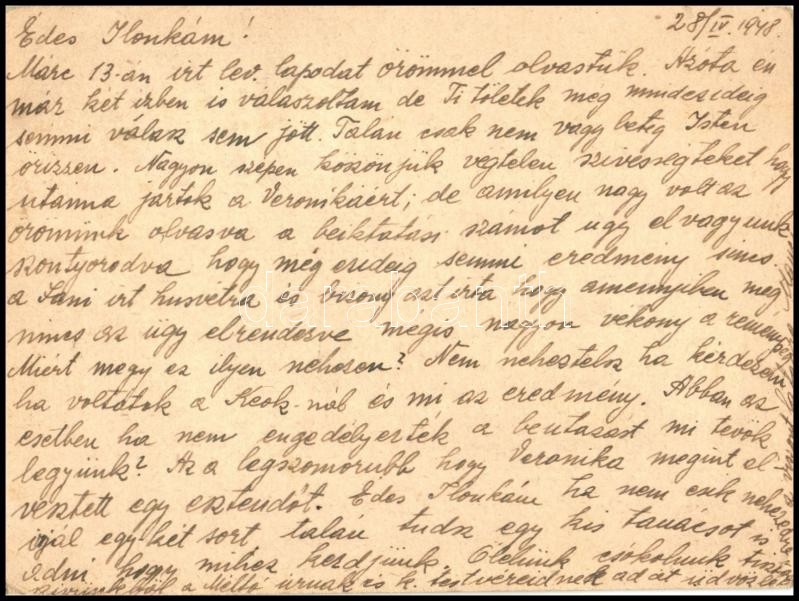 28/IV. 1948.
Édes Ilonkám!
Márc 13-án irt lev. lapodat örömmel olvastuk. Azóta én
már két izben is válaszoltam de Ti töletek még mindezideig
semmi válasz sem jött. Talán csak nem vagy beteg Isten
örizzen. Nagyon szépen köszönjük végtelen szivességteket hogy
utánna jártok a Veronikáért, de amilyen nagy volt az
örömünk olvasva a beiktatási számot ugy el vagyunk
szontyorodva hogy még ezideig semmi eredmény sincs.
a Sani irt husvétra és bizony azt irta hogy amennyiben még
nincs az ügy elrendezve mégis nagyon vékony a remény
Miért megy ez ilyen nehezen? Nem neheztelsz ha kérdezem
ha voltatok a Keok-nál és mi az eredmény. Abban az
esetben ha nem engedélyezték a beutazást mi tevök
legyünk? Az a legszomorubb hogy Veronika megint el-
vesztett egy esztendöt. Édes Ilonkám ha nem esik nehezedre
irjál egy két sort talán tudsz egy kis tanácsot is
adni hogy mihez kezdjünk. Ölelünk csókolunk
szivünkböl a Méltó urnak és k. testvéreidnek adát üdvözlet
darabanth